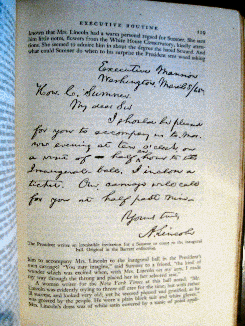 EXECUTIVE ROUTINE
known that Mrs. Lincoln had a warm personal regard for Sumner. She sent
him little notes, flowers from the White House Conservatory, kindly
She seemed to admire him in about the degree the
what could Sumner do when to his surprise the President sent word asking
Executive Mansion
Washington, March 5/65
Hon. C. Sumner
My dear Sir
I should be pleased
for you to accompany us to-mor-
row evening at ten o'clock on
a visit of half an hour to the
Inaugural-ball. I inclose a
ticket. Our carriage will call
for you at half past nine.
Yours truly
A. Lincoln
The President writes an invitation for a Sumner to the inaugural
ball. Original in the Barrett collection.
him to accompany Mrs. Lincoln to the inaugural ball in the President's
own carriage? "You may imagine," said Sumner to a friend, "the
wonder which was excited when, with Mrs. Lincoln on my arm, I made
my way through the throng and placed her in her selected seat."
A woman writer for the New York Times at this ball noted, "Mr.
Lincoln was evidently trying to throw off care for the time, but with
ill success, and looked very old; yet he seemed pleased and
was greeted by the people. He wore a plain black suit and white gloves."
Mrs. Lincoln's dress was of white satin covered by a tunic of point